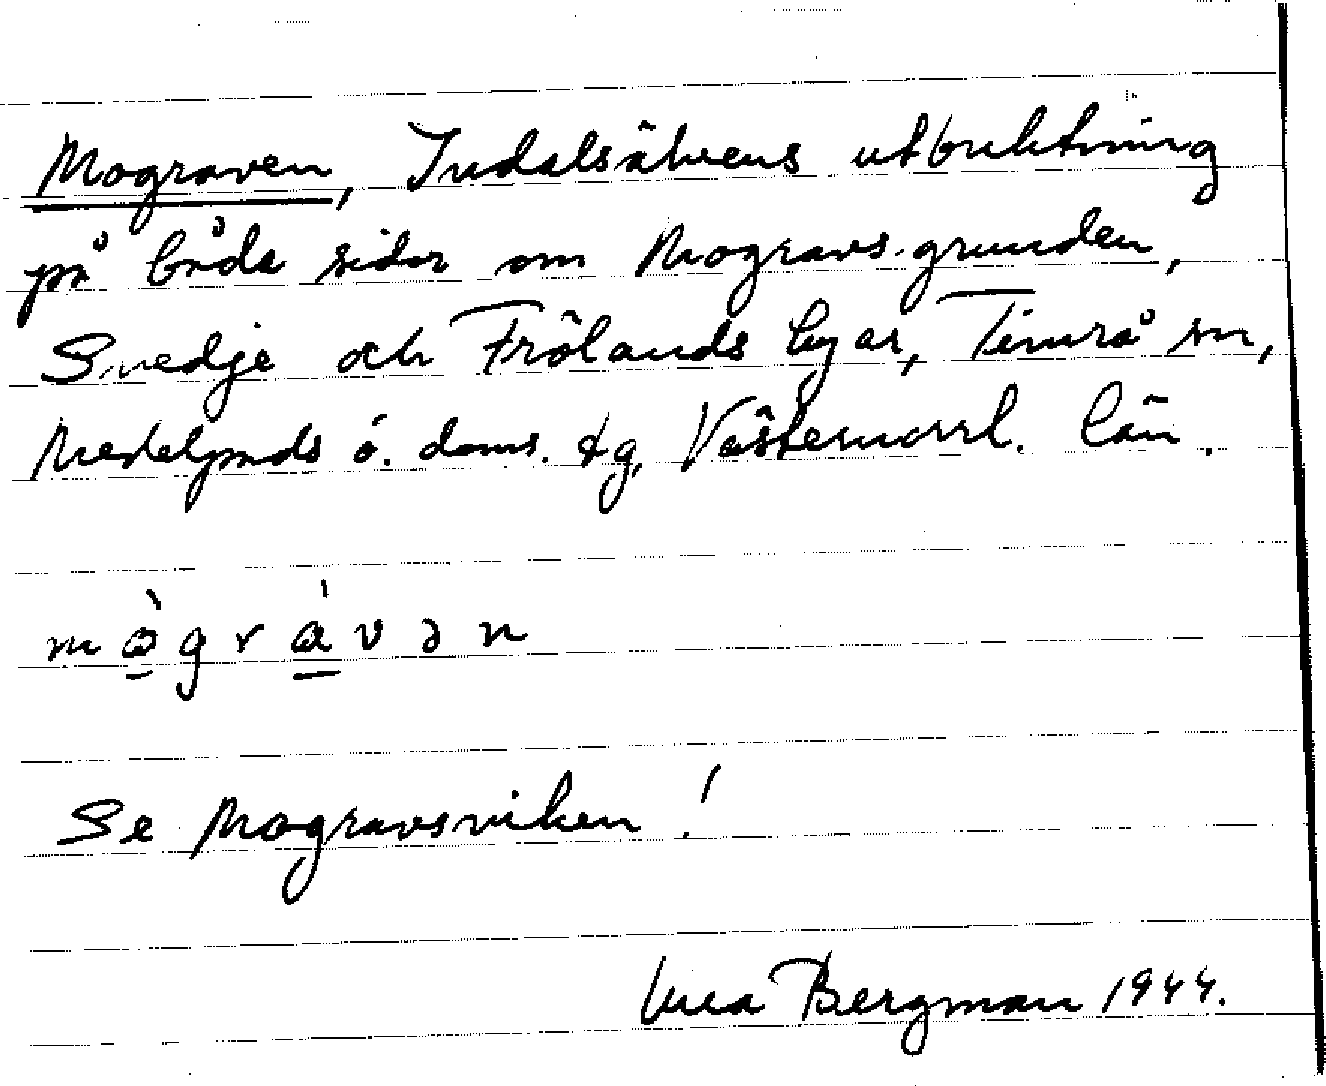 Mograven, Indalsälvens utbuktning
på båda sidor om Mogravsgrunden,
Svedje och Frölands byar, Timrå sn,
Medelpads ö. doms. tg, Västernorrl. län.
Se Mogravsviken!
Bergman 1944.